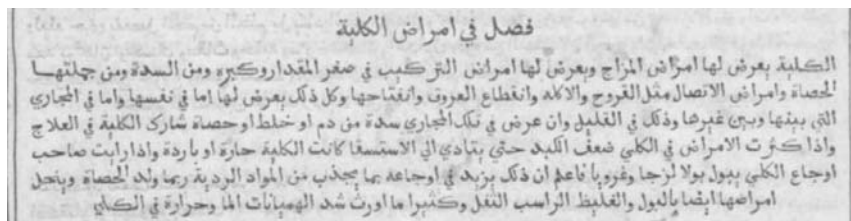 فصل في امراض الكلية
الكلية يعرض لها امراض المزاج ويعرض لها امراض التركيب في صغر المقدار وكبره ومن السدة ومن جملتها
الحصاة وامراض الاتصال مثل القروح والاكلة وانقطاع العروق وانفتاحها وكل ذلك يعرض لها اما في نفسها واما في المجاري
التي بينها وبين غيرها وذلك في القليل وان عرض في تلك المجاري سدة من دم او خلط او حصاة شارك الكلية في العلاج
واذا كثرت الامراض في الكلي ضعف الكبد حتي يتادي الي الاستسقا كانت الكلية حارة او باردة واذا رايت صاحب
اوجاع الكلي يبول بولا لزجا وغرويا فاعلم ان ذلك يزيد في اوجاعه بما يجذب من المواد الردية ربما ولد الحصاة وينحل
امراضها ايضا بالبول والغليظ الراسب الثفل وكثيرا ما اورث شد الهميانات الما وحرارة في الكلي